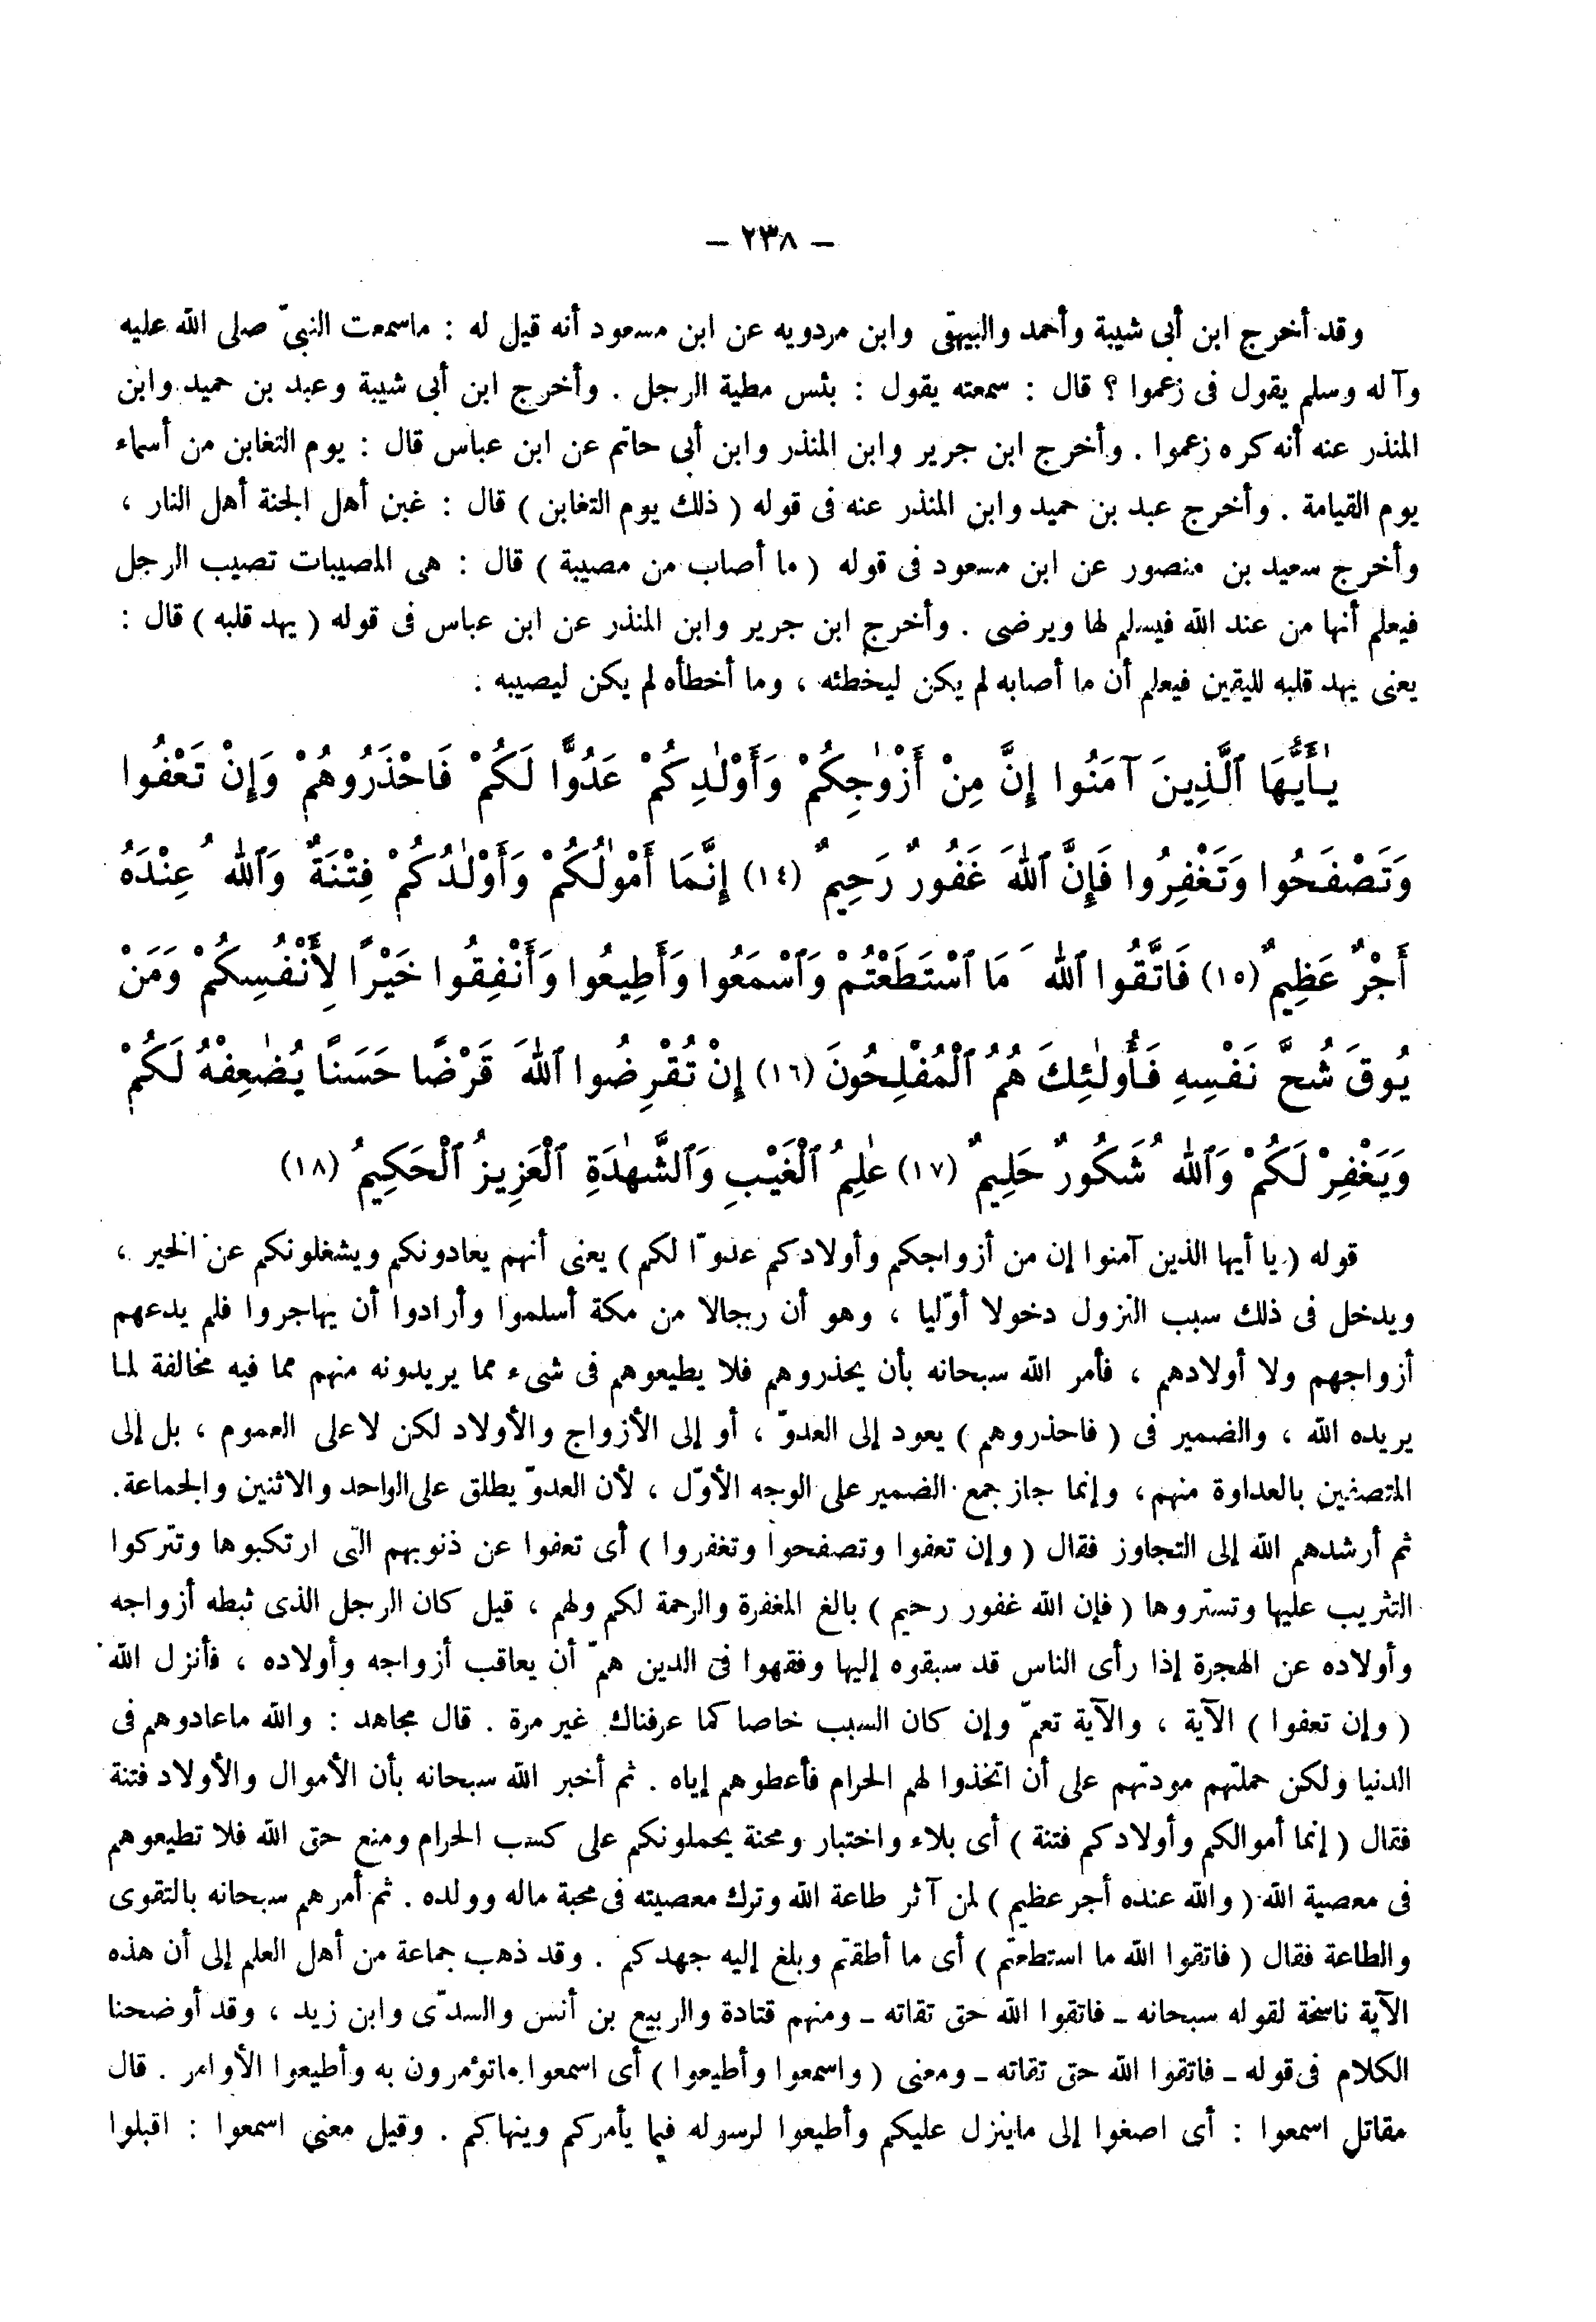 – ٢٣٨ –
وقد أخرج ابن أبى شيبة وأحمد والبيهقى وابن مردويه عن ابن مسعود أنه قيل له : ماسمعت النبىّ صلى الله عليه
وآ له وسلم يقول فى زعموا ؟ قال : سمعته يقول : بئس مطية الرجل . وأخرج ابن أبى شيبة وعبد بن حميد وابن
المنذر عنه أنه كره زعموا . وأخرج ابن جرير وابن المنذر وابن أبى حاتم عن ابن عباس قال : يوم التغابن من أسماء
يوم القيامة . وأخرج عبد بن حميد وابن المنذر عنه فى قوله ( ذلك يوم التغابن ) قال : غبن أهل الجنة أهل النار ،
وأخرج سعيد بن منصور عن ابن مسعود فى قوله ( ما أصاب من مصيبة ) قال : هى المصيبات تصيب الرجل
فيعلم أنها من عند الله فيسلم لها ويرضى . وأخرج ابن جرير وابن المنذر عن ابن عباس فى قوله ( يهد قلبه ) قال :
يعنى يهد قلبه لليقين فيعلم أن ما أصابه لم يكن ليخطئه ، وما أخطأه لم يكن ليصيبه .
يٰـأَيُّهَا ٱلَّذِينَ آمَنُوا إِنَّ مِنْ أَزْوٰجِكُمْ وَأَوْلٰدِكُمْ عَدُوًّا لَكُمْ فَاحْذَرُوهُمْ وَإِنْ تَعْفُوا
وَتَصْفَحُوا وَتَغْفِرُوا فَإِنَّ ٱللهَ غَفُورٌ رَحِيمٌ (١٤) إِنَّمَا أَمْوٰلُكُمْ وَأَوْلٰدُكُمْ فِتْنَةٌ وَٱللهُ عِنْدَهُ
أَجْرٌ عَظِيمٌ (١٥) فَاتَّقُوا ٱللهَ مَا ٱسْتَطَعْتُمْ وَٱسْمَعُوا وَأَطِيعُوا وَأَنْفِقُوا خَيْرًا لِأَنْفُسِكُمْ وَمَنْ
يُوقَ شُحَّ نَفْسِهِ فَأُولٰئِكَ هُمُ ٱلْمُفْلِحُونَ (١٦) إِنْ تُقْرِضُوا ٱللهَ قَرْضًا حَسَنًا يُضٰعِفْهُ لَكُمْ
وَيَغْفِرْ لَكُمْ وَٱللهُ شَكُورٌ حَلِيمٌ (١٧) عٰلِمُ ٱلْغَيْبِ وَٱلشَّهٰدَةِ ٱلْعَزِيزُ ٱلْحَكِيمُ (١٨)
قوله ( يا أيها الذين آمنوا إن من أزواجكم وأولادكم عدوّا لكم ) يعنى أنهم يعادونكم ويشغلونكم عن الخير ،
ويدخل فى ذلك سبب النزول دخولا أوّليا ، وهو أن رجالا من مكة أسلموا وأرادوا أن يهاجروا فلم يدعهم
أزواجهم ولا أولادهم ، فأمر الله سبحانه بأن يحذروهم فلا يطيعوهم فى شىء مما يريدونه منهم مما فيه مخالفة لما
يريده الله ، والضمير فى ( فاحذروهم ) يعود إلى العدوّ ، أو إلى الأزواج والأولاد لكن لاعلى العموم ، بل إلى
المتصفين بالعداوة منهم، وإنما جاز جمع الضمير على الوجه الأوّل ، لأن العدوّ يطلق على الواحد والاثنين والجماعة.
ثم أرشدهم الله إلى التجاوز فقال ( وإن تعفوا وتصفحوا وتغفروا ) أى تعفوا عن ذنوبهم التى ارتكبوها وتتركوا
التثريب عليها وتستّروها ( فإن الله غفور رحيم ) بالغ المغفرة والرحمة لكم ولهم ، قيل كان الرجل الذى ثبطه أزواجه
وأولاده عن الهجرة إذا رأى الناس قد سبقوه إليها وفقهوا فى الدين همّ أن يعاقب أزواجه وأولاده ، فأنزل الله
( وإن تعفوا ) الآية ، والآية تعمّ وإن كان السبب خاصا كما عرفناك غير مرة . قال مجاهد : والله ماعادوهم فى
الدنيا ولكن حملتهم مودتهم على أن اتخذوا لهم الحرام فأعطوهم إياه . ثم أخبر الله سبحانه بأن الأموال والأولاد فتنة
فقال ( إنما أموالكم وأولادكم فتنة ) أى بلاء واختبار ومحنة يحملونكم على كسب الحرام ومنع حق الله فلا تطيعوهم
فى معصية الله ( والله عنده أجر عظيم ) لمن آثر طاعة الله وترك معصيته فى محبة ماله وولده . ثم أمرهم سبحانه بالتقوى
والطاعة فقال ( فاتقوا الله ما استطعتم ) أى ما أطقتم وبلغ إليه جهدكم . وقد ذهب جماعة من أهل العلم إلى أن هذه
الآية ناسخة لقوله سبحانه ــ فاتقوا الله حق تقاته ــ ومنهم قتادة والربيع بن أنس والسدّى وابن زيد ، وقد أوضحنا
الكلام فى قوله ــ فاتقوا الله حق تقاته ــ ومعنى ( واسمعوا وأطيعوا ) أى اسمعوا ماتؤمرون به وأطيعوا الأوامر . قال
مقاتل اسمعوا : أى اصغوا إلى ماينزل عليكم وأطيعوا لرسوله فيما يأمركم وينهاكم . وقيل معنى اسمعوا : اقبلوا